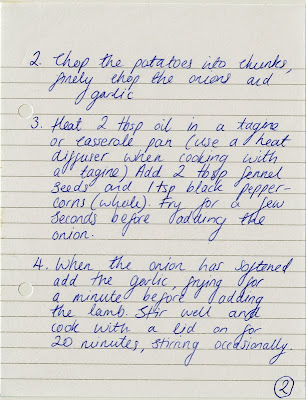 2. Chop the potatoes into chunks,
finely chop the onions and
garlic
3. Heat 2 tbsp oil in a tagine
or casserole pan (use a heat
diffuser when cooking with
a tagine) Add 2 tbsp fennel
seeds and 1 tsp black pepper-
corns (whole). Fry for a few
seconds before adding the
onion.
4. When the onion has softened
add the garlic, frying for
a minute before adding
the lamb. Stir well and
cook with a lid on for
20 minutes, stirring occasionally.
2